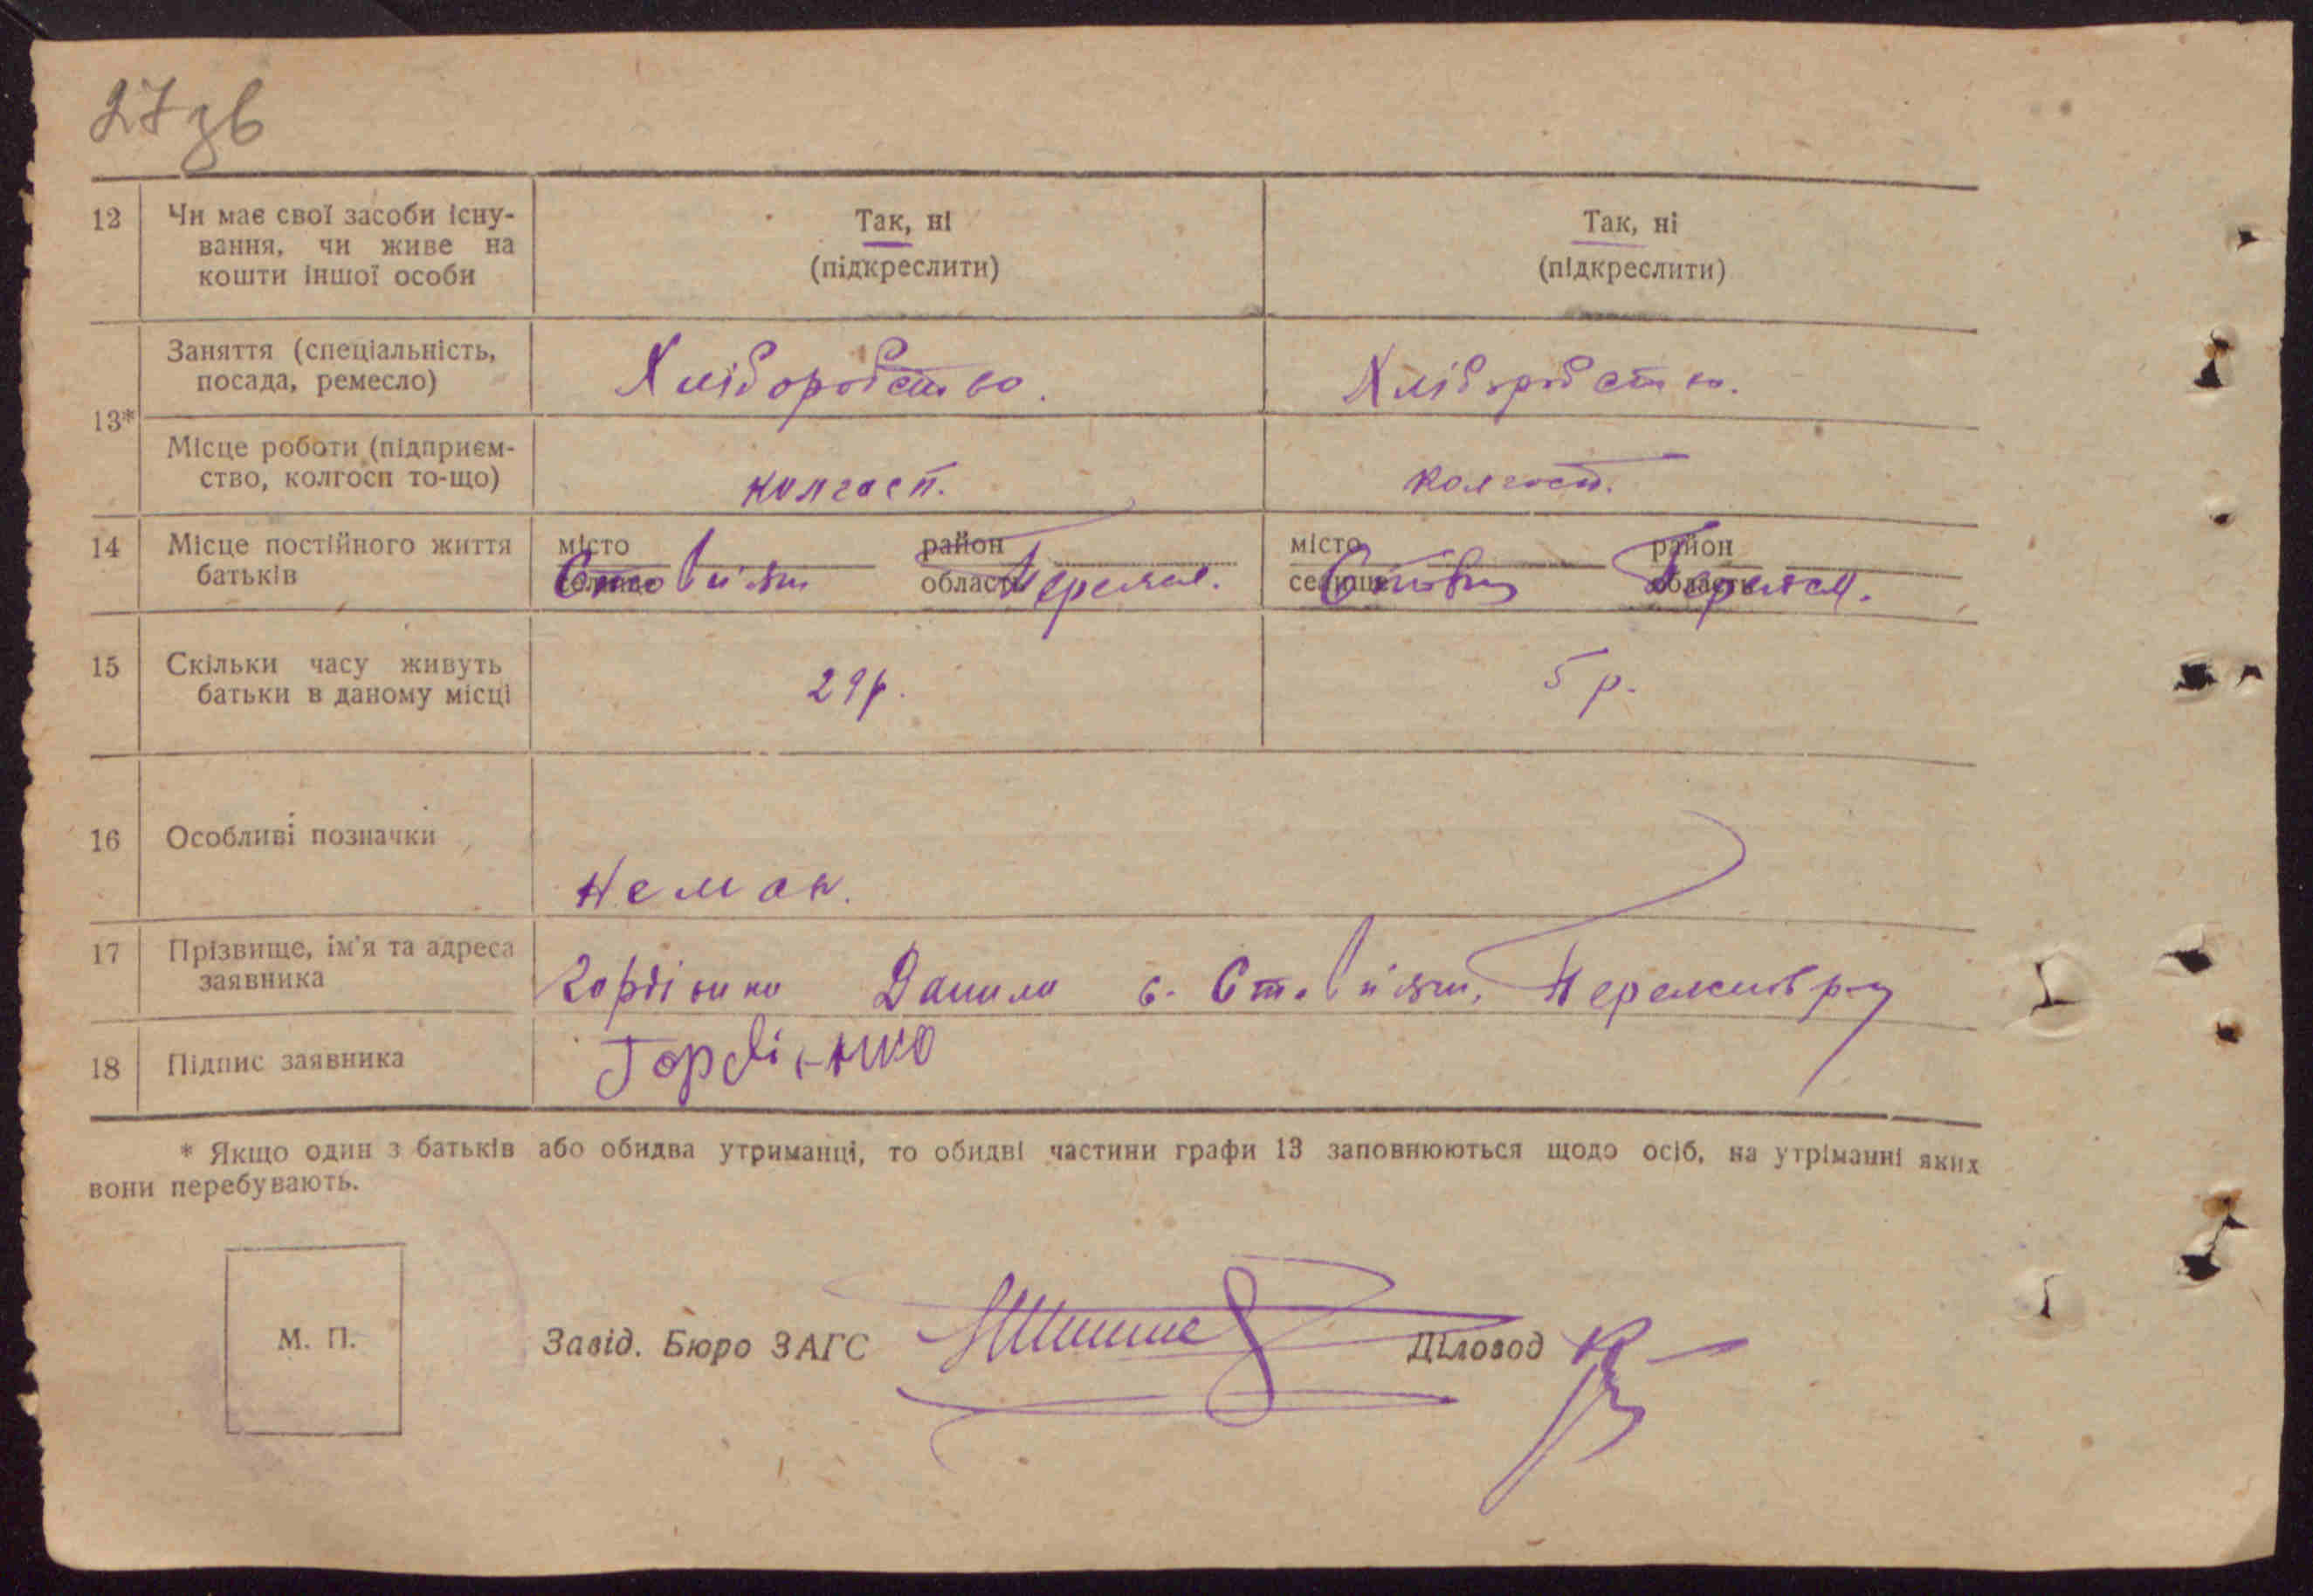 27 зв
12 Чи має свої засоби існу-
вання, чи живе на
кошти іншої особи
Так, ні
(підкреслити)
Так, ні
(підкреслити)
13*
Заняття (спеціальність,
посада, ремесло)
Хліборобство.
Хліборобство.
Місце роботи (підприєм-
ство, колгосп то-що)
колгосп.
колгосп.
14 Місце постійного життя
батьків
місто
селище
район
область
Переясл.
місто
селище
район
область
Переясл.
15 Скільки часу живуть
батьки в даному місці
29 р.
5 р.
16 Особливі позначки
Немає.
17 Прізвище, ім'я та адреса
заявника
Гордієнко Данило с.
18 Підпис заявника
Гордієнко
* Якщо один з батьків або обидва утриманці, то обидві частини графи 13 заповнюються щодо осіб, на утріманні яких
вони перебувають.
М. П.
Завід. Бюро ЗАГС
Діловод